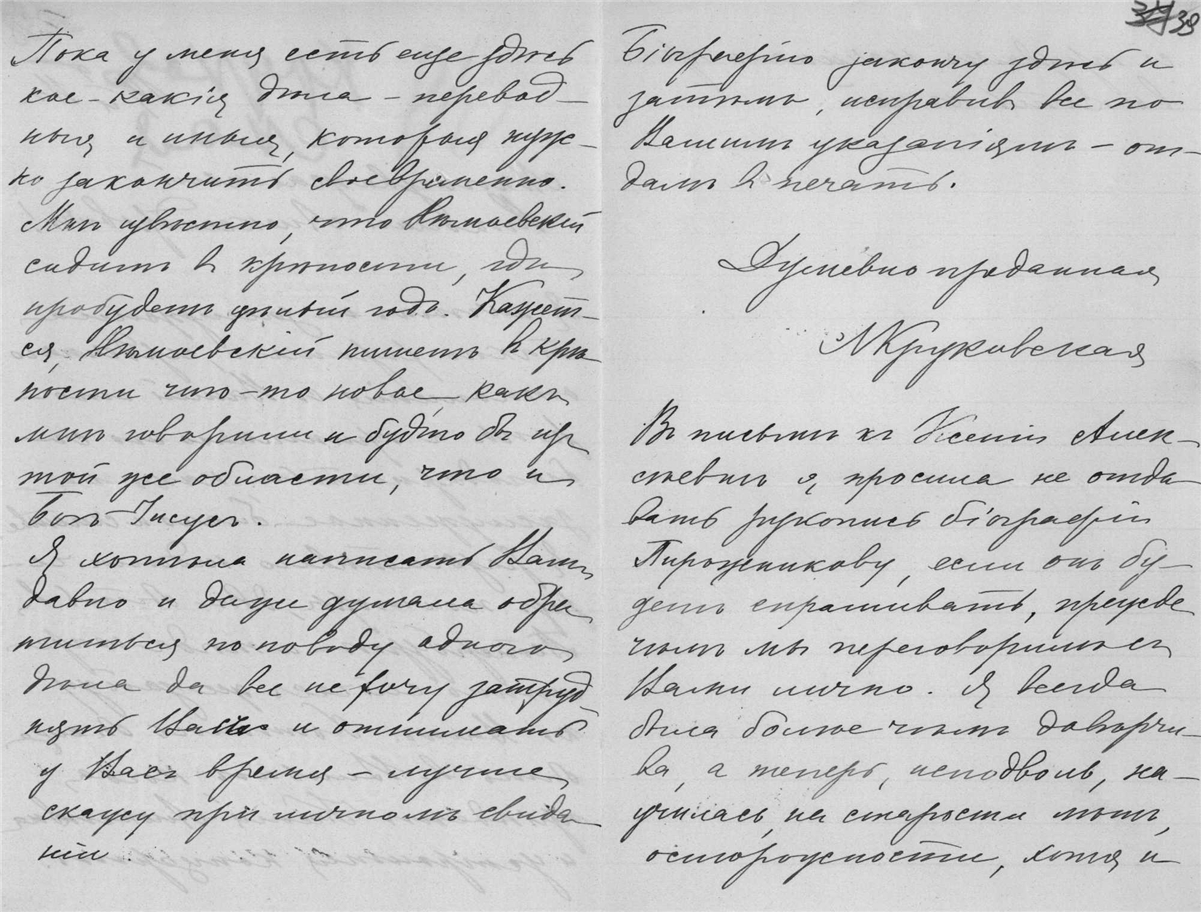 39
Пока у меня есть еще здѣсь
кое-какія дѣла – перевод-
ныя и иныя, которыя нуж-
но закончить своевременно.
Мнѣ извѣстно, что Нѣмоевскій
сидитъ въ крѣпости, гдѣ
пробудетъ цѣлый годъ. Кажет-
ся, Нѣмоевскій пишетъ въ крѣ-
пости что-то новое какъ
мнѣ говорили и будто бы изъ
той же области, что и
Богъ-Іисусъ.
Я хотѣла написать Вамъ
давно и даже думала обра-
титься по поводу одного
дѣла да все не хочу затруд-
нять Васъ и отнимать
у Васъ время – лучше
скажу при личномъ свида-
ніи.
Біографію закончу здѣсь и
затѣмъ, исправивъ все по
Вашимъ указаніямъ – от-
дамъ въ печать.
Душевно преданная
МКруковская
Въ письмѣ къ Ксеніи Алек-
сѣевнѣ я просила не отда-
вать рукопись біографіи
Пирожникову, если онъ бу-
детъ спрашивать, прежде
чѣмъ мы переговоримъ съ
Вами лично. Я всегда
была болѣе чѣмъ довѣрчи-
ва, а теперь, исподволь, на-
училась, на старости лѣтъ,
осторожности, хотя и